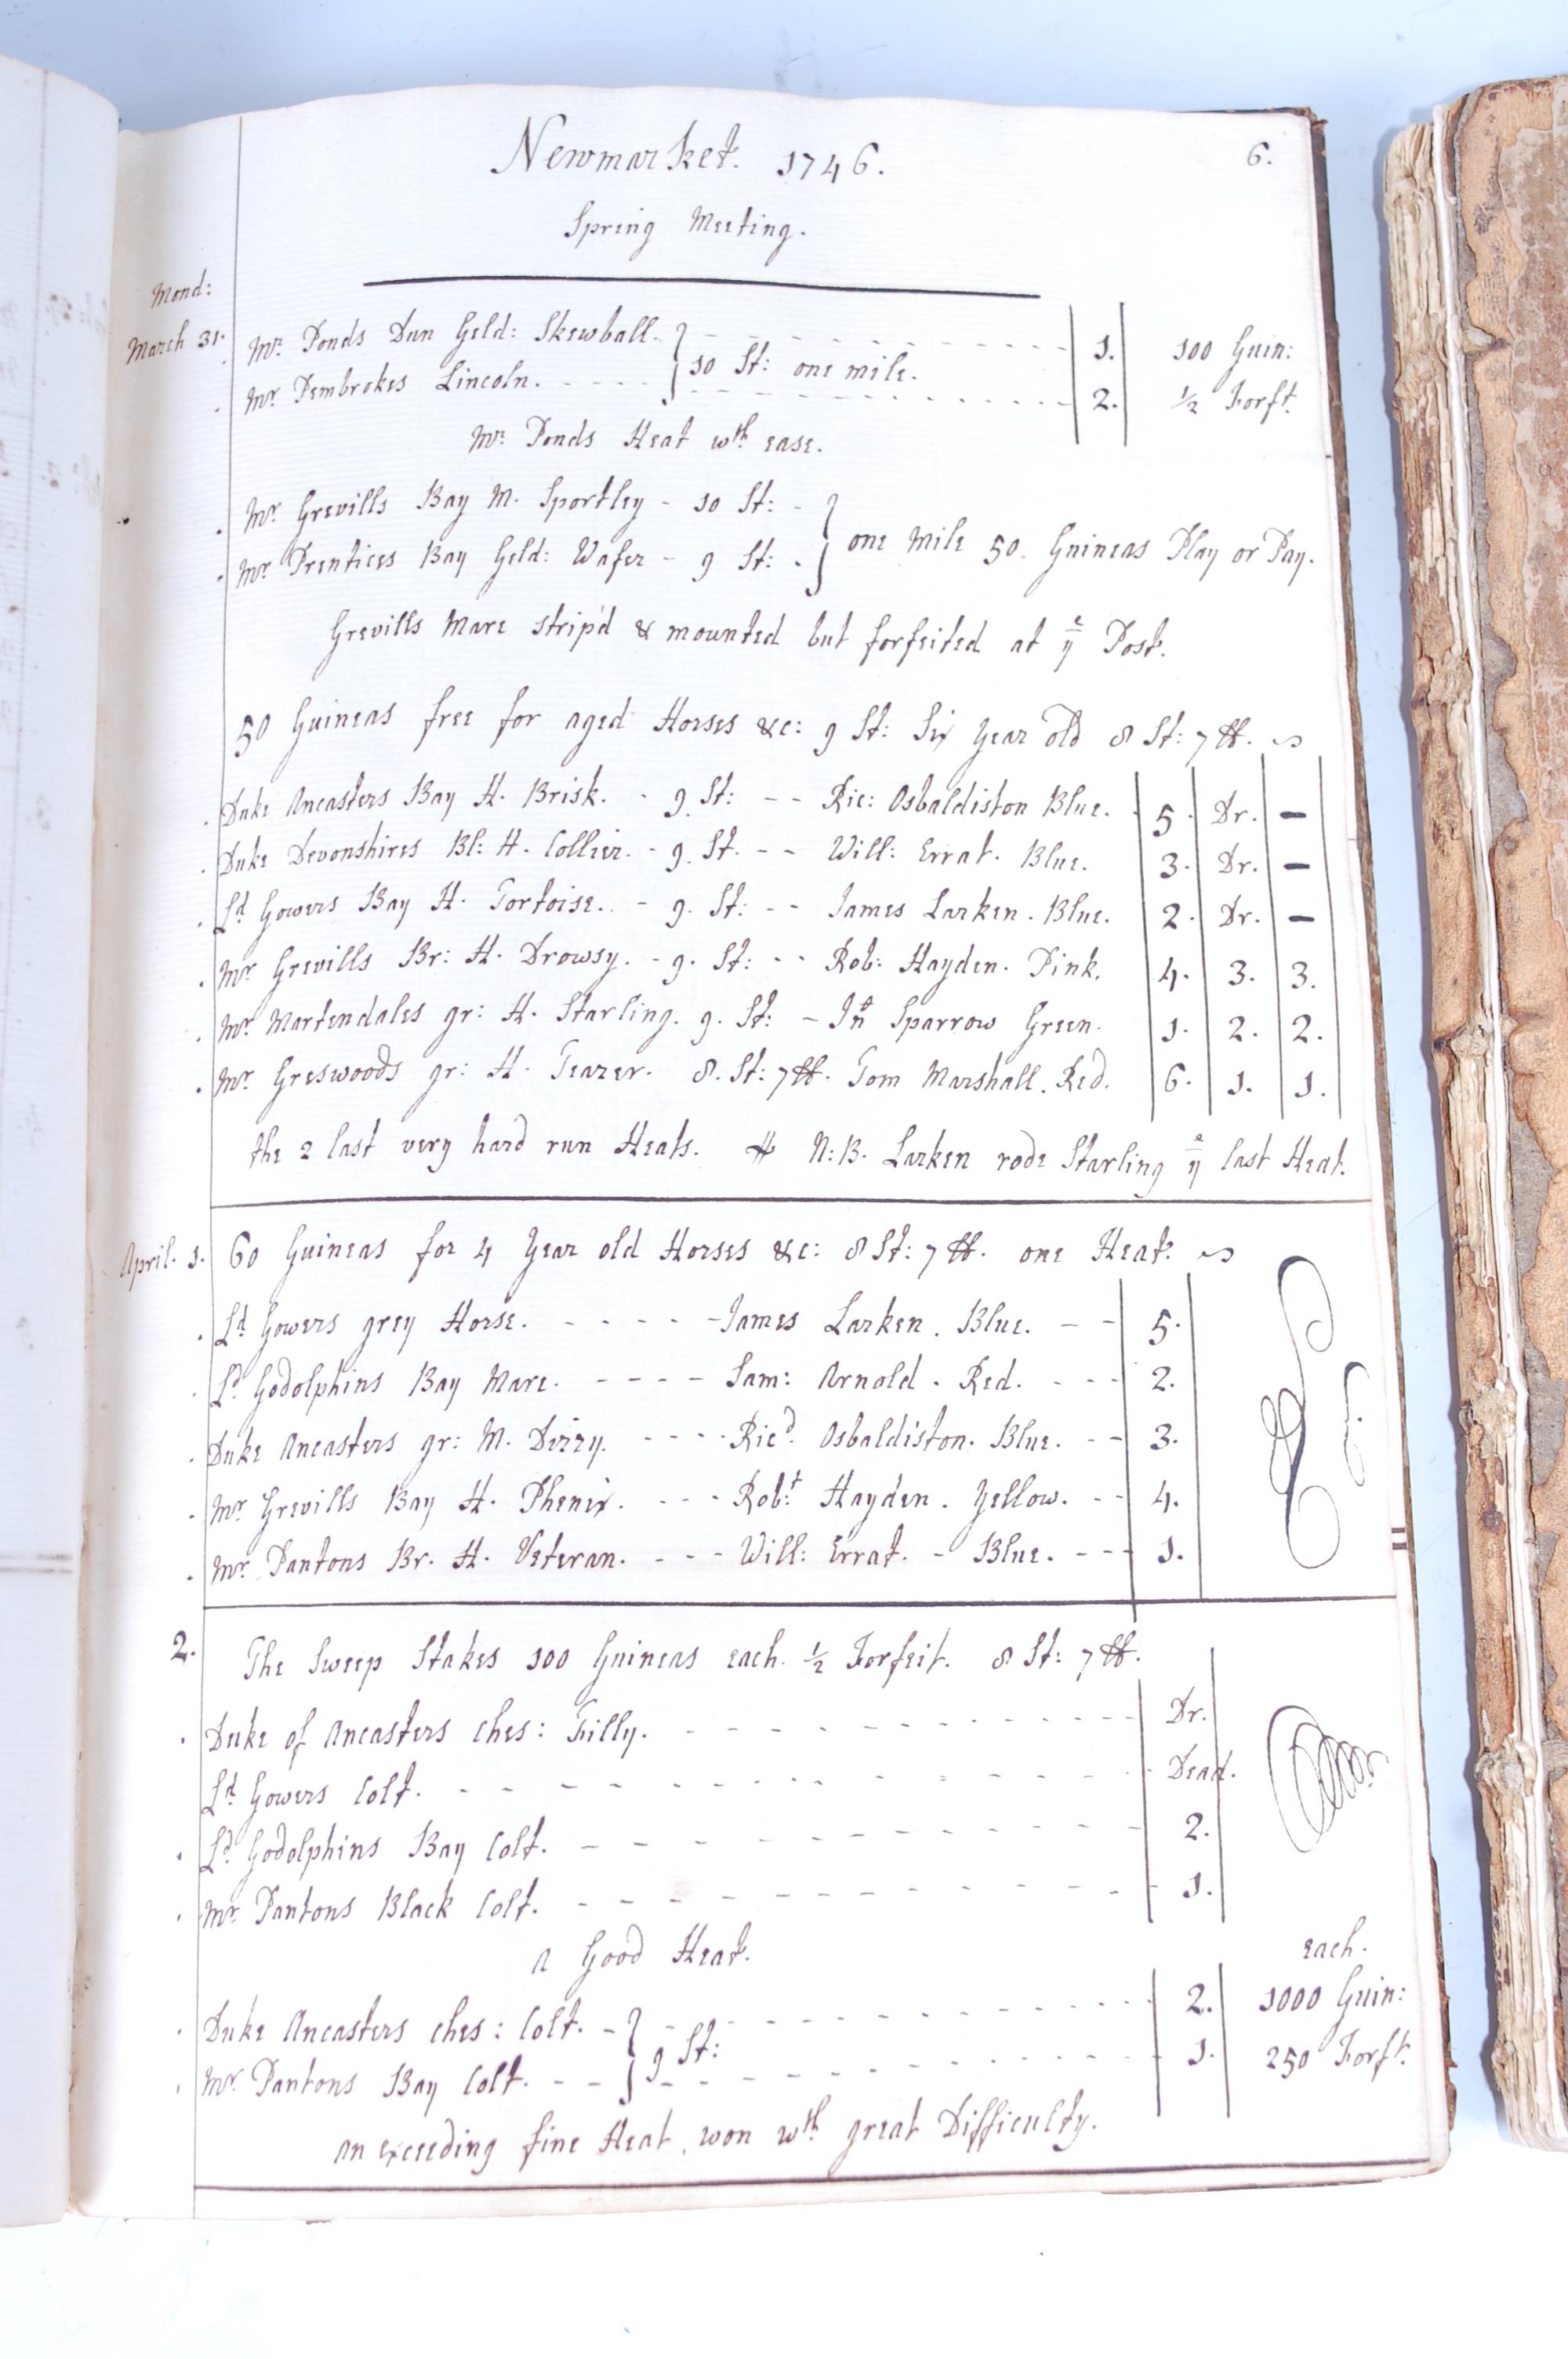 Newmarket. 1746. 6.
Spring Meeting.
Mond:
March 31. Mr. Ponds Dun Geld: Skewball. 1. 100 Guin:
10 St: one mile.
Mr. Pembrokes Lincoln. 2. ½ Forft.
Mr. Ponds Heat wth ease.
Mr. Grevills Bay M. Sportley - 10 St: -
one Mile 50. Guineas Play or Pay.
Mr. Prentices Bay Geld: Wafer - 9 St: -
Grevills Mare strip'd & mounted but forfeited at ye Post.
50 Guineas free for aged Horses &c: 9 St: Six Year old 8 St: 7 lb.
Duke Ancasters Bay H. Brisk. - 9. St: - - Ric: Osbaldiston Blue. 5. Dr. -
Duke Devonshires Bl: H. Collier. - 9. St. - - Will: Errat. Blue. 3. Dr. -
Ld. Gowers Bay H. Tortoise. - 9. St: - - James Larken. Blue. 2. Dr. -
Mr. Grevills Br: H. Drowsy. - 9. St: - - Rob: Hayden. Pink. 4. 3. 3.
Mr. Martendales gr: H. Starling. 9. St: - Jno Sparrow Green. 1. 2. 2.
Mr. Greswoods gr: H. Teazer. 8. St: 7 lb. Tom Marshall. Red. 6. 1. 1.
the 2 last very hard run Heats. # N:B. Larken rode Starling ye last Heat.
April. 1. 60 Guineas for 4 Year old Horses &c: 8 St: 7 lb. one Heat.
Ld. Gowers grey Horse. - - - - - James Larken. Blue. - - 5.
Ld. Godolphins Bay Mare. - - - - Sam: Arnold. Red. - - - 2.
Duke Ancasters gr: M. Dizzy. - - - - Ricd. Osbaldiston. Blue. - - 3.
Mr. Grevills Bay H. Phenix. - - - Robt: Hayden. Yellow. - - 4.
Mr. Pantons Br. H. Veteran. - - - Will: Errat. - Blue. - - - 1.
2. The Sweep Stakes 100 Guineas each. ½ Forfeit. 8 St: 7 lb.
Duke of Ancasters Ches: Filly. Dr.
Ld. Gowers Colt. Dead.
Ld. Godolphins Bay Colt. 2.
Mr. Pantons Black Colt. 1.
A Good Heat.
each.
Duke Ancasters Ches: Colt. - 2. 1000 Guin:
9 St:
Mr. Pantons Bay Colt. - - 1. 250 Forft.
An exceeding fine Heat, won wth great Difficulty.